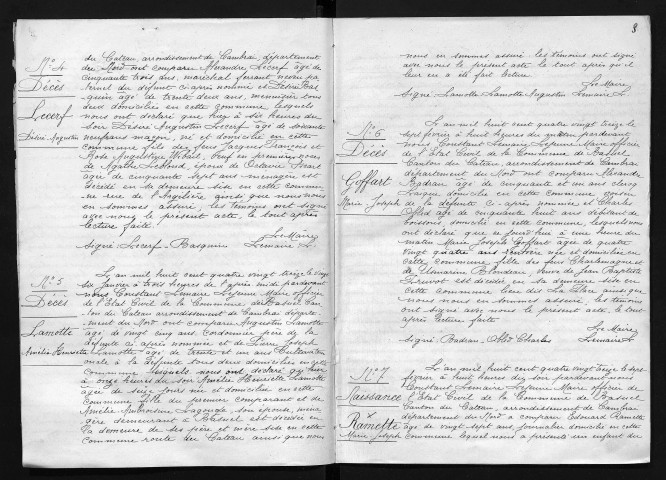 du Cateau, arrondissement de Cambrai, département
du Nord ont comparu Alexandre Lecerf âgé de
cinquante trois ans, maréchal ferrant neveu pa
ternel du défunt ci-après nommé et Désiré Bas
quin âgé de trente deux ans, menuisier tous
deux domiciliés en cette commune lesquels
nous ont déclaré que hier à six heures du
soir Désiré Augustin Lecerf âgé de soixante
ans maçon, né et domicilié en cette
commune fils de feus Jacques François et
Rose Angélique Wibail, veuf en premières noces
de Agathe Lebond, époux de Octavie
âgée de cinquante sept ans ménagère est
décédé en sa demeure sise en cette commu
ne rue de ainsi que nous nous
en sommes assuré. Les témoins ont signé
avec nous le présent acte, le tout après
lecture faite.
Le Maire,
Signé Lecerf - Basquin Lemaire L.
N° 4
Décès
Lecerf
Désiré Augustin
L'an mil huit cent quatre vingt treize le vingt
six Janvier à trois heures de l'après-midi pardevant
nous Constant Lemaire Lefebvre Maire officier
de l'Etat Civil de la Commune de Bazuel Can
ton du Cateau arrondissement de Cambrai départe
ment du Nord ont comparu Augustin Lamotte
âgé de vingt cinq ans cordonnier père de la
défunte ci après nommée et de Pierre Joseph
Lamotte âgé de trente et un ans cultivateur
oncle à la défunte tous deux domiciliés en cette
commune lesquels nous ont déclaré que hier
à onze heures du soir Amélie Henriette Lamotte
âgée de seize jours née et domiciliée en cette
commune fille du premier comparant et de
Amélie Ambroisine Lagouge son épouse ména
gère demeurant à Bazuel est décédée en
la demeure de ses père et mère sise en cette
commune route du Cateau ainsi que nous
N° 5
Décès
Lamotte
Amélie Henriette
3
nous en sommes assuré. les témoins ont signé
avec nous le présent acte le tout après qu'il
leur en a été fait lecture
Le Maire
Signé Lamotte Lamotte Augustin Lemaire L.
L'an mil huit cent quatre vingt treize le
sept février à huit heures du matin pardevant
nous Constant Lemaire Lefebvre Maire officier
de l'Etat Civil de la Commune de Bazuel
Canton du Cateau arrondissement de Cambrai
département du Nord ont comparu Alexandre
Badran âgé de cinquante et un ans clerc
laïque domicilié en cette Commune époux
de la défunte ci-après nommée et Charles
Obled âgé de cinquante huit ans débitant de
boissons domicilié en cette commune, lesquels nous
ont déclaré que ce jourd'hui à une heure du
matin Marie Joseph Goffart âgée de quatre
vingt quatre ans rentière née et domiciliée en
cette commune fille des feus Charlemagne et
de Blondeau, veuve de Jean Baptiste
Pruvot est décédée en sa demeure sise en
cette commune lieu dit La Place ainsi que
nous nous en sommes assuré, les témoins
ont signé avec nous le présent acte, le tout
après lecture faite.
Le Maire
Signé Badran Obled Charles Lemaire L.
N° 6
Décès
Goffart
Marie Joseph
L'an mil huit cent quatre vingt treize le sept
février à huit heures du soir pardevant nous
Constant Lemaire Lefebvre Maire officier de
l'Etat Civil de la Commune de Bazuel
Canton du Cateau arrondissement de Cambrai
département du Nord a comparu Edouard Ramette
âgé de vingt-sept ans, journalier domicilié en cette
commune lequel nous a présenté un enfant du
N° 7
Naissance
Ramette
Marie Joseph